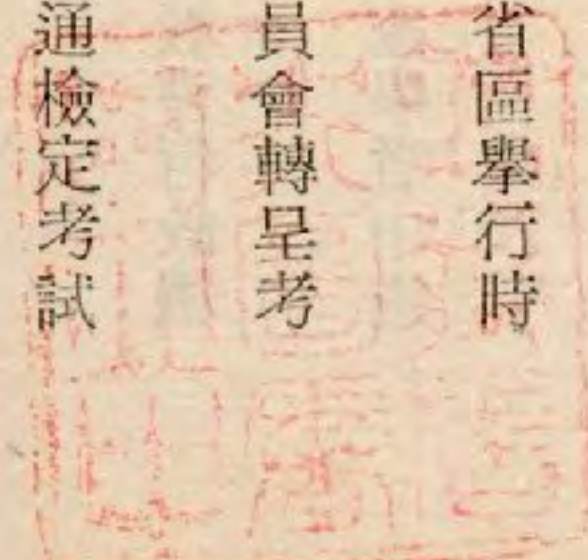 省區舉行時
員會轉呈考
通檢定考試